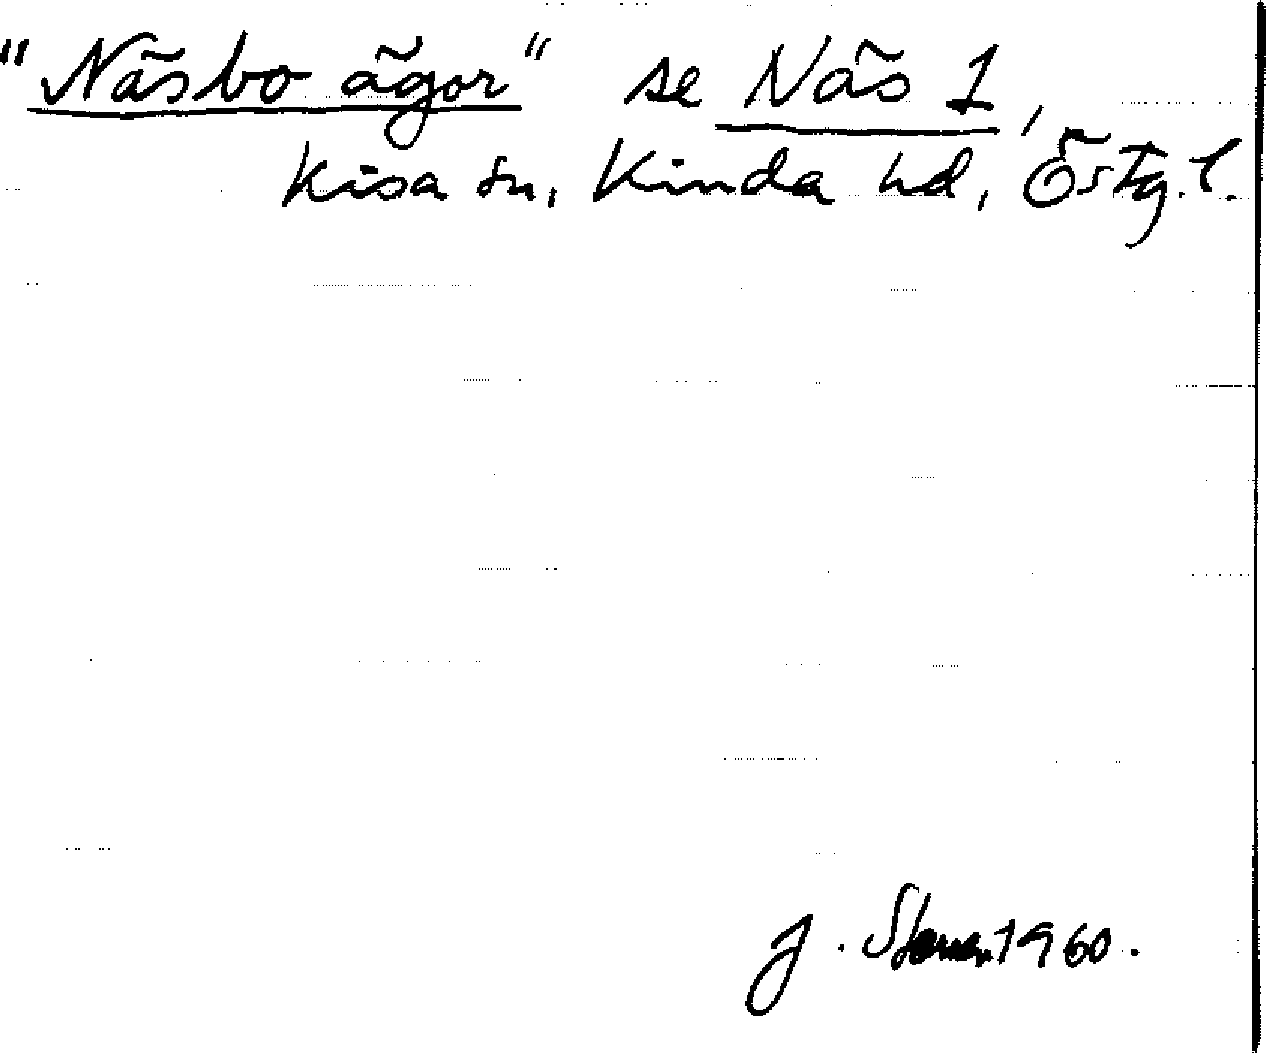 "Näsbo ägor" se Näs 1,
Kisa sn, Kinda hd, Östg.l.
J. 1960.